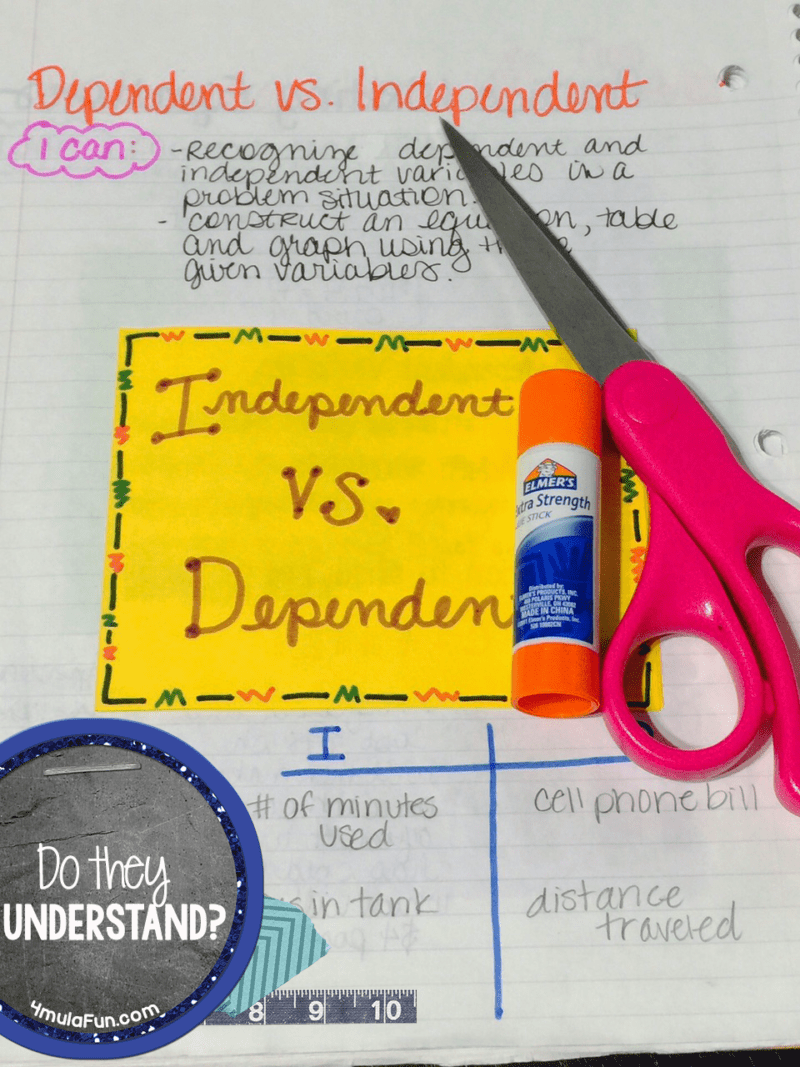 Dependent vs. Independent
I can:
-Recognize dependent and
independent variables in a
problem situation.
- construct an equation, table
and graph using the
given variables.
Independent
vs.
Dependent
ELMER'S
Extra Strength
GLUE STICK
Distributed by:
ELMER'S PRODUCTS, INC.
MADE IN CHINA
I
# of minutes
used
cell phone bill
in tank
distance
traveled
Do they
UNDERSTAND?
4mulaFun.com
8 9 10